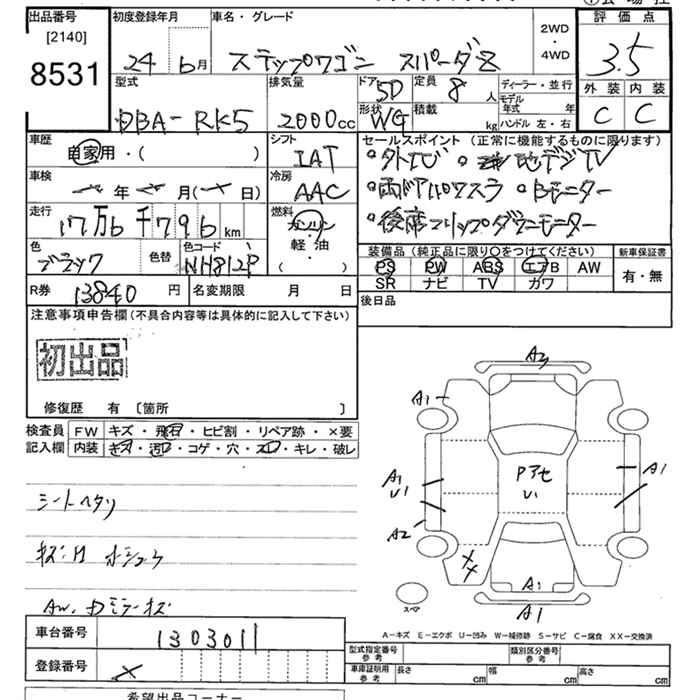 出品番号 初度登録年月 車名・グレード 評価点
[2140] 2WD
8531 24 6月 ステップワゴン スパーダZ ・ 3.5
4WD
型式 排気量 ドア 5D 定員 8人 ディーラー・並行 外装 内装
DBA-RK5 2000cc 形状 WG 積載 kg モデル年式 年 C C
ハンドル 左・右
車歴 シフト セールスポイント (正常に機能するものに限ります)
自家用・( ) IAT ・外TV ・地デジTV
車検 年 月( 日) 冷房 AAC ・両ドアパワスラ ・Bモニター
走行 17万6千796km 燃料 ガソリン ・後席フリップダウンモニター
・
軽油
( )
色 ブラック 色替 色コード NH812P
装備品 (純正品に限り○をつけてください) 新車保証書
PS PW ABS エアB AW 有・無
SR ナビ TV カワ
R券 13840円 名変期限 月 日 後日品
注意事項申告欄(不具合内容等は具体的に記入して下さい)
初出品
修復歴 有 〔箇所 〕
検査員 FW キズ・飛石・ヒビ割・リペア跡・×要
記入欄 内装 キズ・汚れ・コゲ・穴・スレ・キレ・破レ
A3
A1
A1
U1
A1
Pアセ
U1
A2
A1
スペア
A1
シートヘタリ
キズ・H ホシュウ
AW、ドミラーキズ
A-キズ E-エクボ U-凹み W-補修跡 S-サビ C-腐食 XX-交換済
車台番号 1303011
登録番号 ×
型式指定番号 参考 類別区分番号 参考
車庫証明用 参考 長さ cm 幅 cm 高さ cm
希望出品コーナー